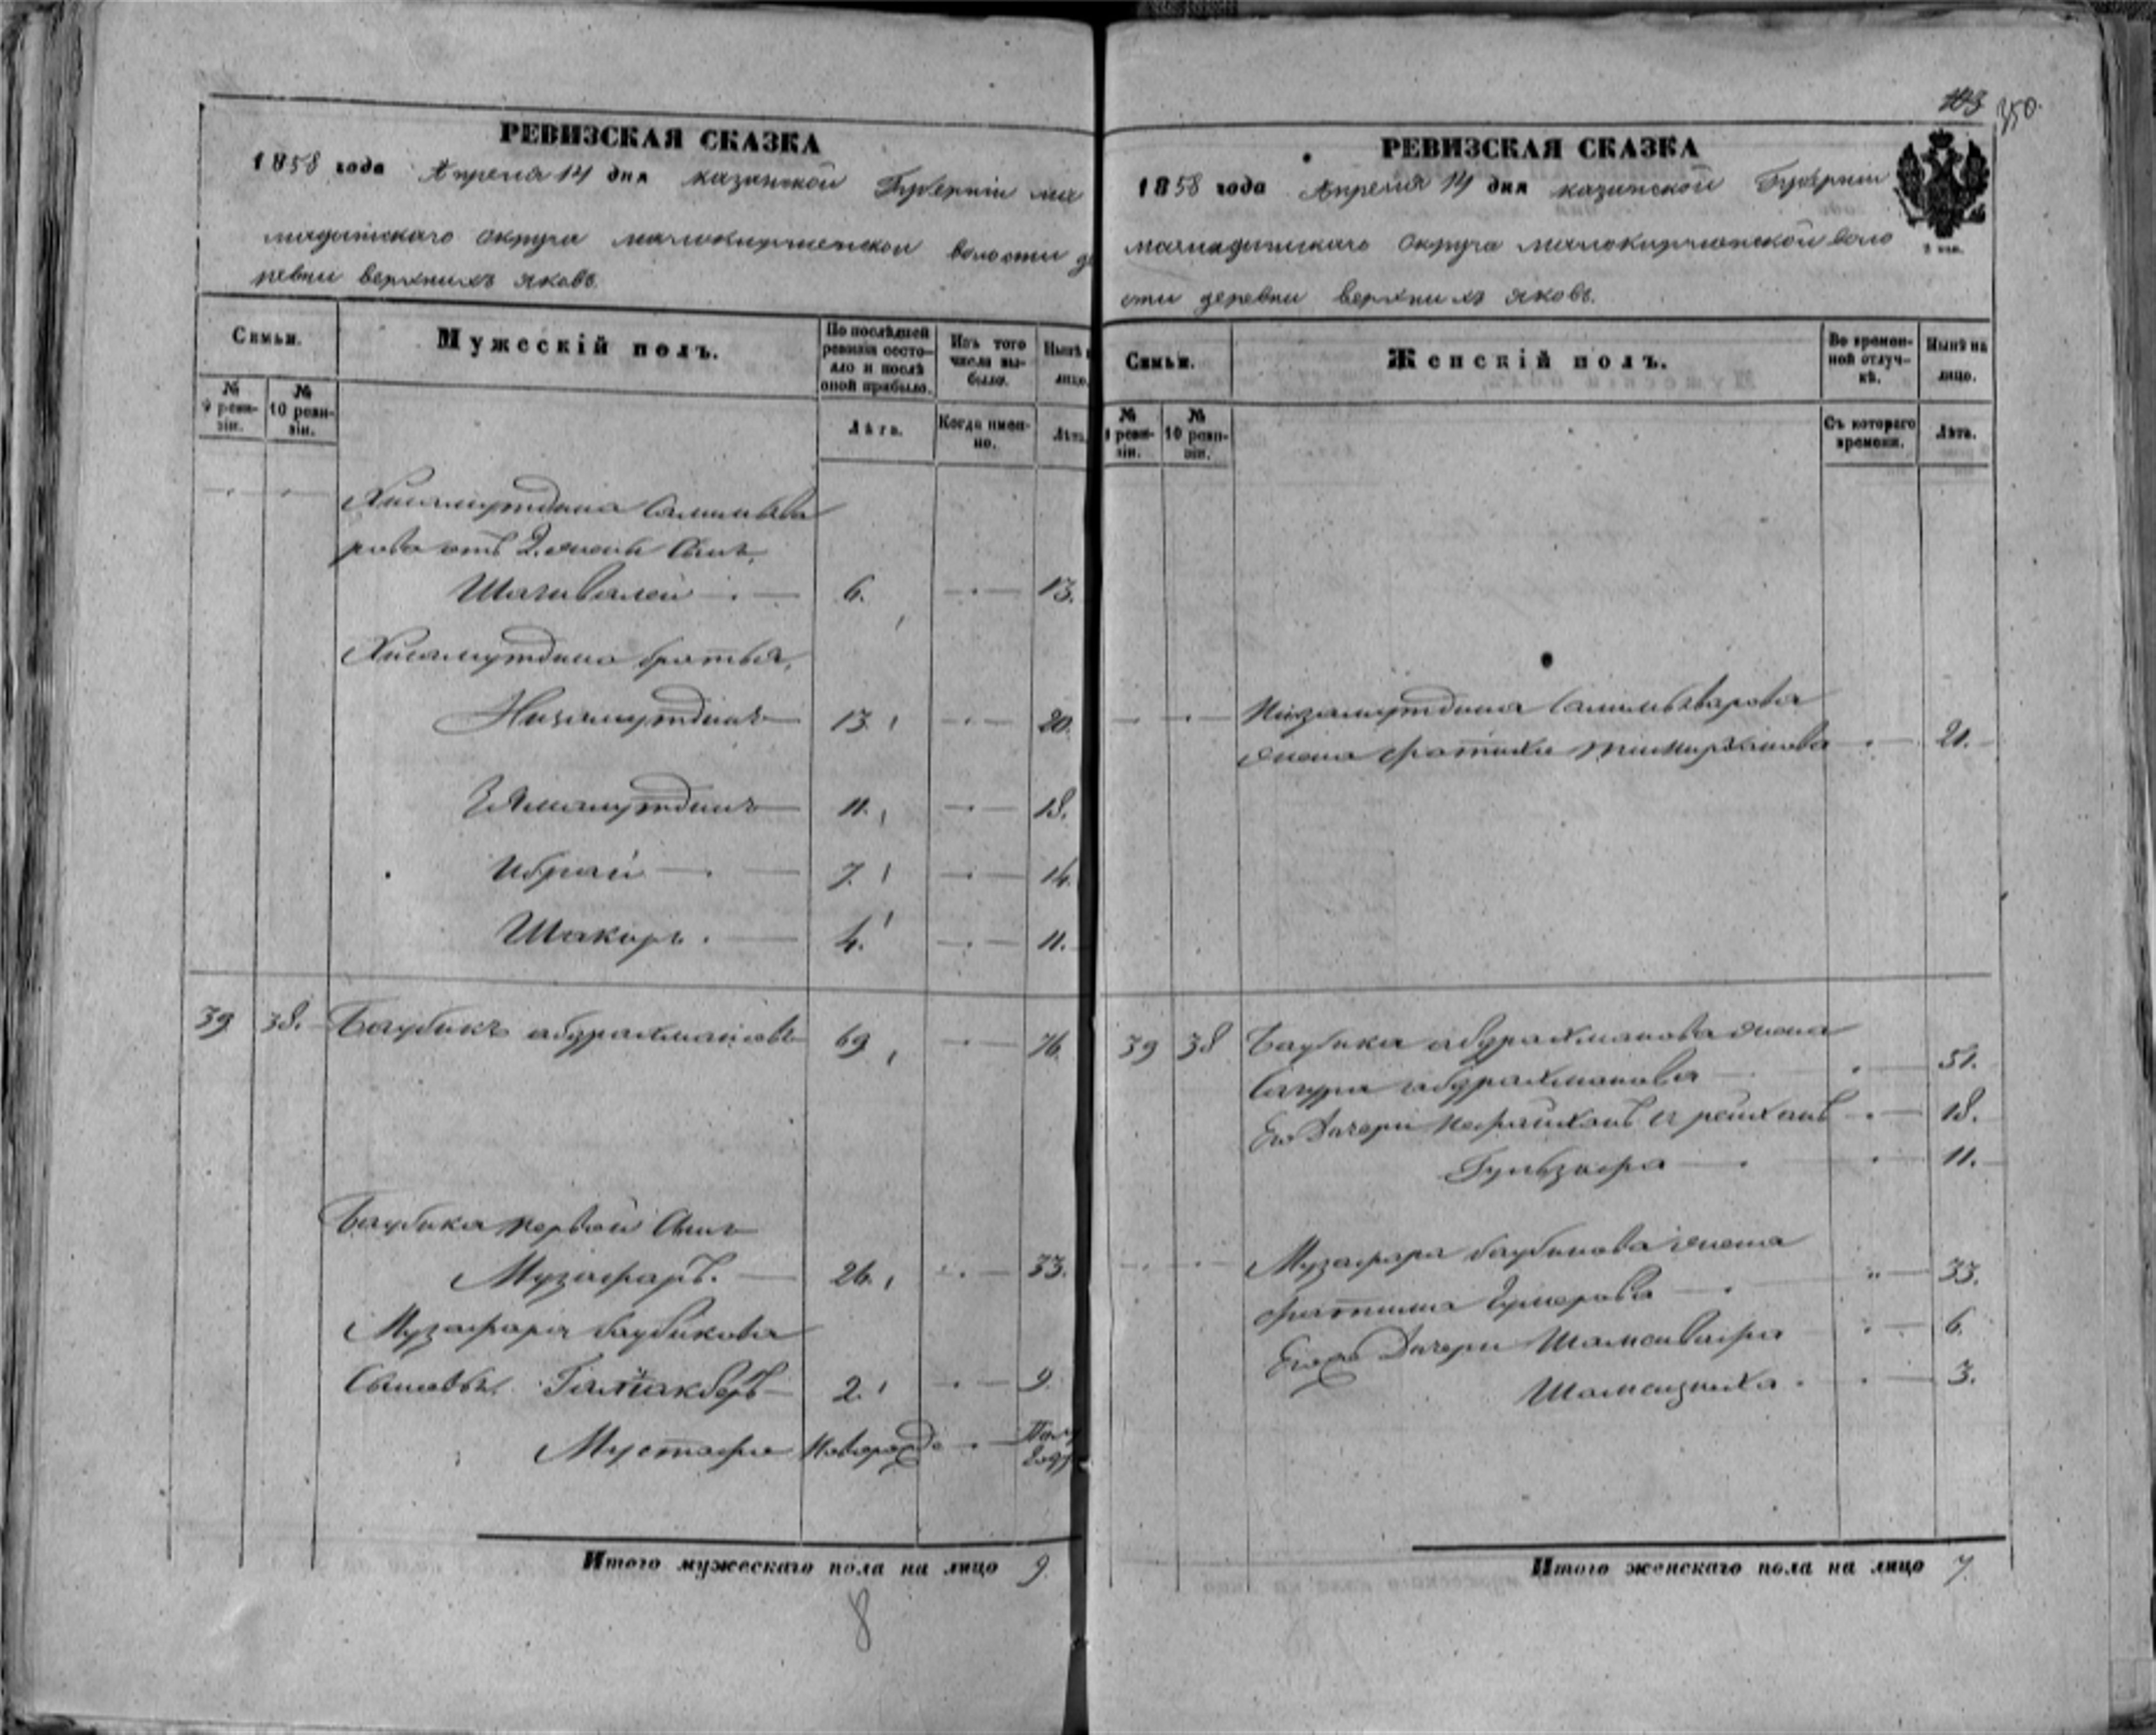 103
350.
РЕВИЗСКАЯ СКАЗКА
1858 года Апреля 14 дня казанской Губерніи ма
мадышскаго округа малокирменской волости де
ревни верхнихъ яковъ.
Семьи.
Мужескій полъ.
По послѣдней ревизіи состояло и послѣ оной прибыло.
Изъ того числа выбыло.
Нынѣ на лицо.
№ 9 ревизіи.
№ 10 ревизіи.
Лѣта.
Когда именно.
Лѣта.
Хисамутдина
рова отъ 2. жены Сынъ,
Шагивалей 6. 13.
Хисамутдина братья,
Низамутдинъ 13 20.
11. 18.
Ибрай 7. 14.
Шакиръ. 4. 11.
39 38. Баубикъ абдрахмановъ 69 76.
Баубика первой Сынъ
Музафаръ. 26. 33.
Музафара баубикова
Сыновья 2. 9.
Мустафа Новорожд Полу
году
Итого мужескаго пола на лицо 9.
8
РЕВИЗСКАЯ СКАЗКА
1858 года Апреля 14 дня казанской Губерніи
мамадышскаго округа малокирменской воло
сти деревни верхнихъ яковъ.
Семьи.
Женскій полъ.
Во временной отлучкѣ.
Нынѣ на лицо.
№ 9 ревизіи.
№ 10 ревизіи.
Съ котораго времени.
Лѣта.
Низамутдина
жена 21.
39 38 Баубика абдрахманова жена
абдрахманова 51.
Его Дочери 18.
11.
Музафара баубикова жена
фатима Гумерова 33.
Дочери 6.
3.
Итого женскаго пола на лицо 7.